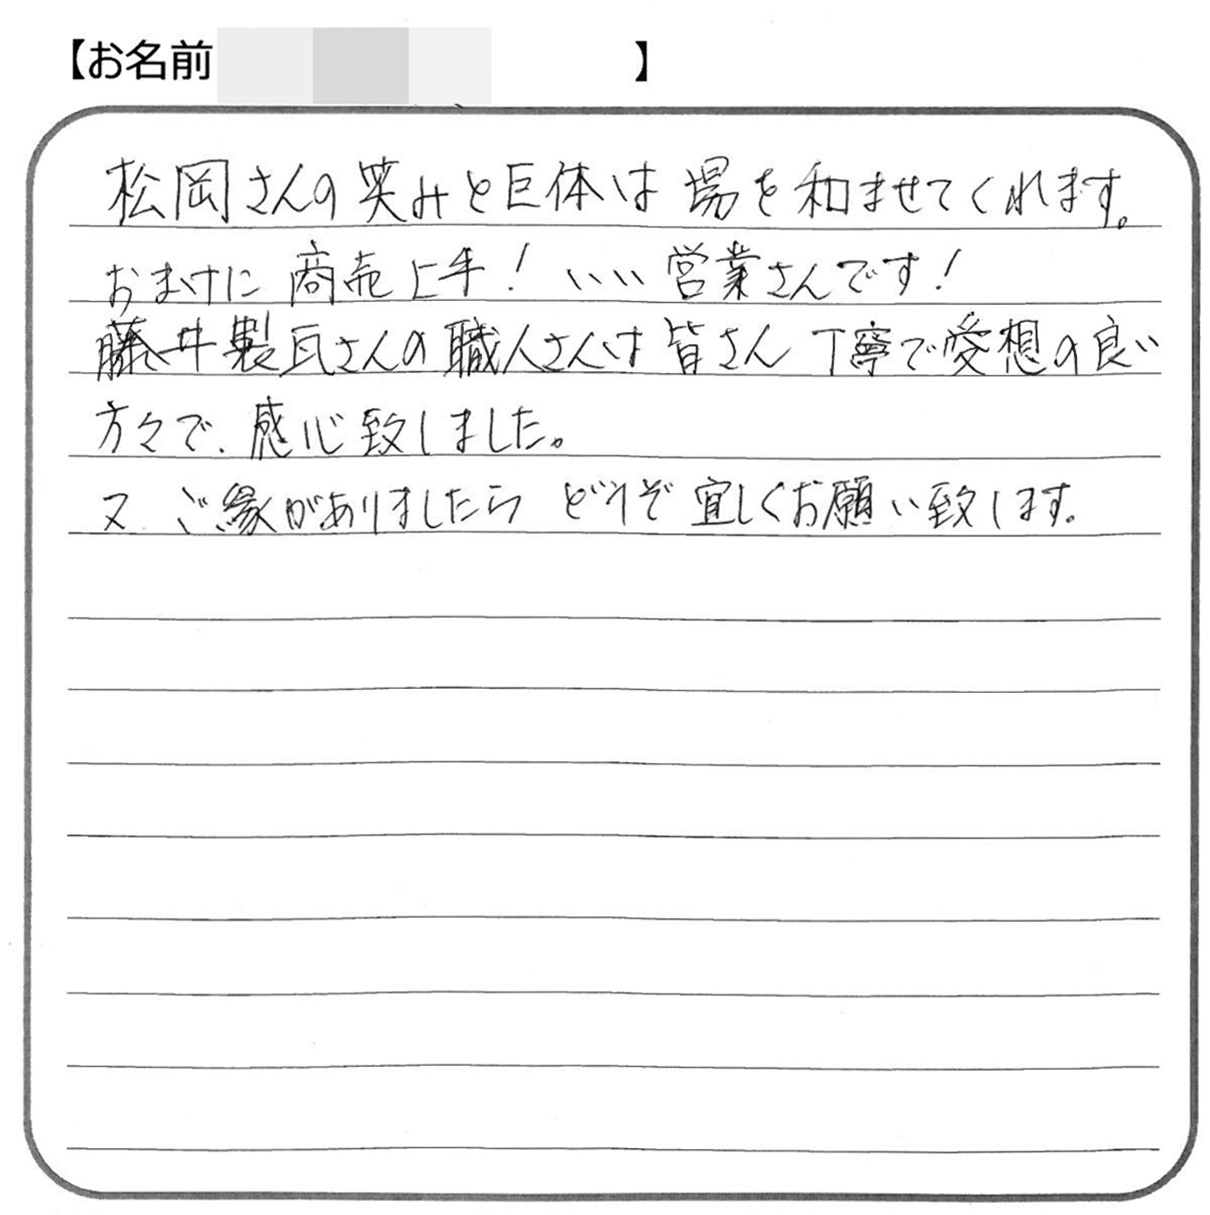 【お名前 】
松岡さんの笑みと巨体は 場を和ませてくれます。
おまけに 商売上手！ いい 営業さんです！
藤井製瓦さんの職人さんは 皆さん 丁寧で愛想の良い
方々で、感心致しました。
又 ご縁がありましたら どうぞ 宜しくお願い致します。